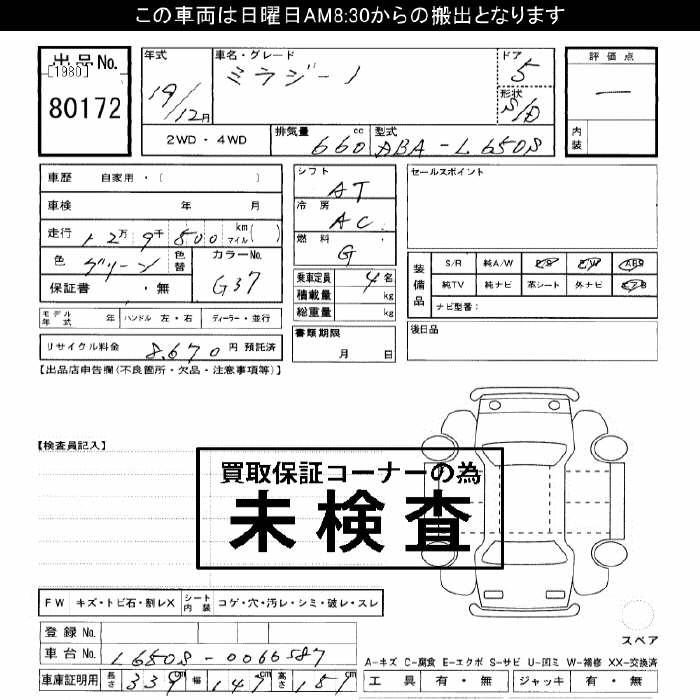 この車両は日曜日AM8:30からの搬出となります
出品No.
[1980]
80172
年式
19/12月
車名・グレード
ミラジーノ
ドア
5
形状
S/D
評価点
―
内装
2WD・4WD
排気量
660 cc
型式
ABA-L650S
車歴 自家用・( )
車検 年 月
走行 12万9千800 km マイル( )
色 グリーン 色替 カラーNo. G37
保証書 ・無
モデル年式 年 ハンドル 左・右 ディーラー・並行
リサイクル料金 8,670 円 預託済
シフト
AT
冷房
AC
燃料
G
乗車定員 4 名
積載量 kg
総重量 kg
書類期限
月 日
セールスポイント
装備品
S/R 純A/W P/S P/W ABS
純TV 純ナビ 革シート 外ナビ エアB
ナビ型番:
後日品
【出品店申告欄(不良箇所・欠品・注意事項等)】
【検査員記入】
買取保証コーナーの為
未検査
FW キズ・トビ石・割レX シート内装 コゲ・穴・汚レ・シミ・破レ・スレ
登録No.
車台No. L650S-0066587
車庫証明用 長さ 339cm 幅 147cm 高さ 151cm
スペア
A-キズ C-腐食 E-エクボ S-サビ U-凹ミ W-補修 XX-交換済
工具 有・無 ジャッキ 有・無